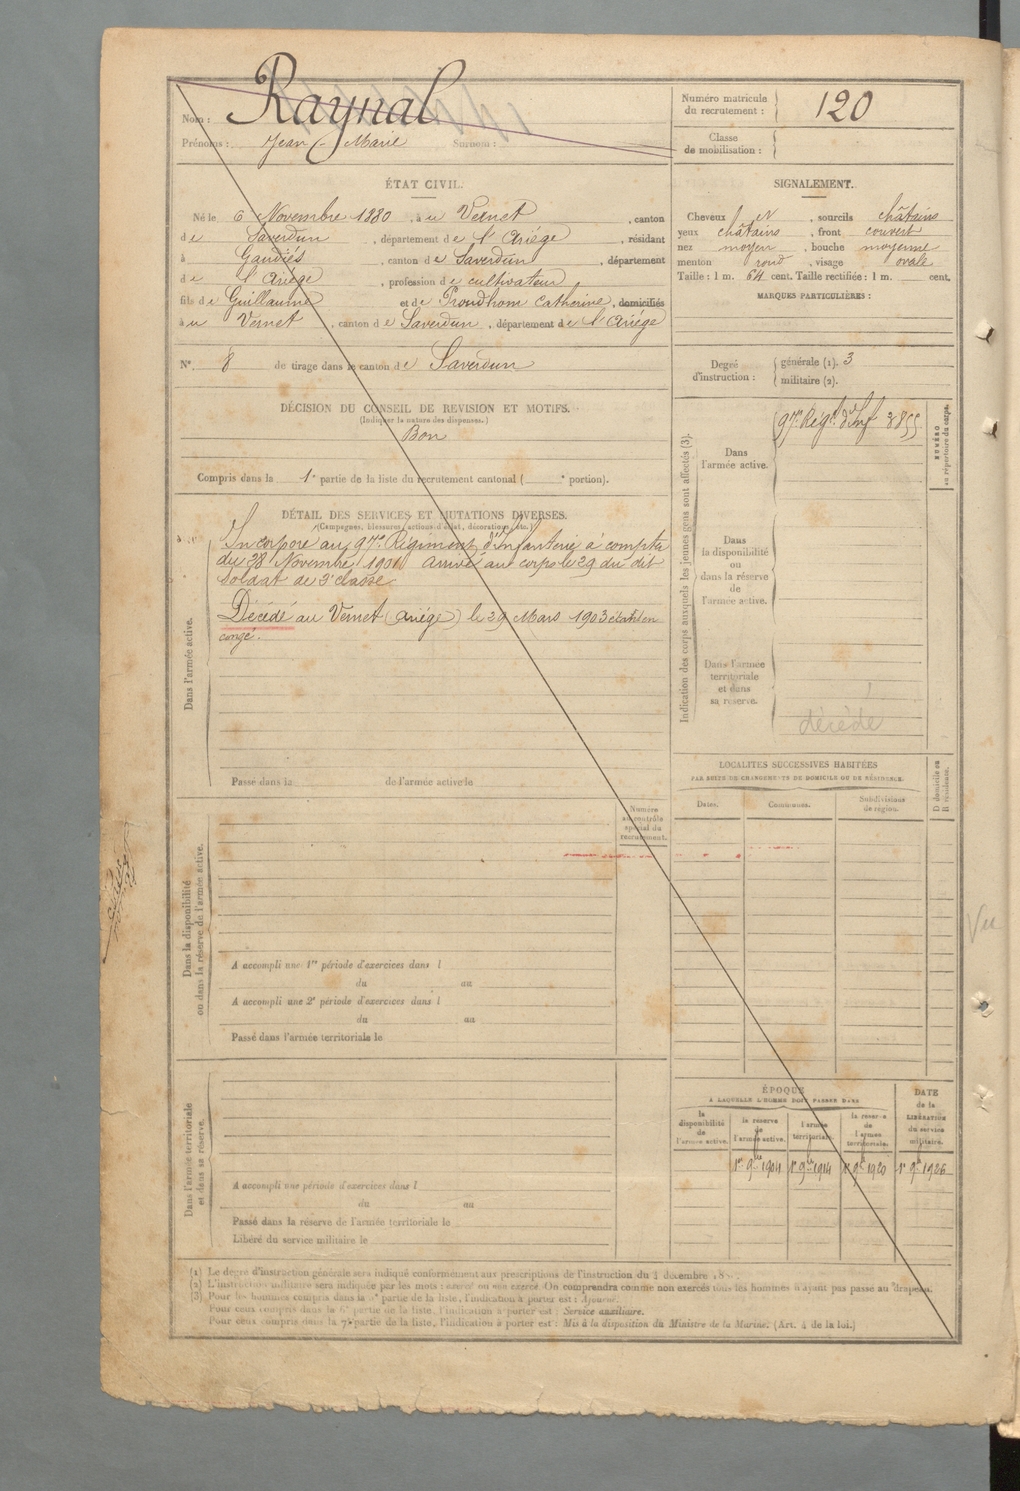 Nom : Raynal
Prénoms : Jean-Marie Surnom :
Numéro matricule du recrutement : 120
Classe de mobilisation :
ÉTAT CIVIL.
Né le 6 Novembre 1880, à u Vernet, canton
de Saverdun, département de l'Ariège, résidant
à Gaudiés, canton de Saverdun, département
de l'Ariège, profession de cultivateur
fils de Guillaume et de Proudhom Catherine, domiciliés
à u Vernet, canton de Saverdun, département de l'Ariège
N° 8 de tirage dans le canton de Saverdun
SIGNALEMENT.
Cheveux et, sourcils châtains
yeux châtains, front couvert
nez moyen, bouche moyenne
menton rond, visage ovale
Taille : 1 m. 64 cent. Taille rectifiée : 1 m. cent.
MARQUES PARTICULIÈRES :
Degré d'instruction : générale (1). 3
militaire (2).
DÉCISION DU CONSEIL DE REVISION ET MOTIFS.
(Indiquer la nature des dispenses.)
Bon
Compris dans la 1e partie de la liste du recrutement cantonal ( e portion).
DÉTAIL DES SERVICES ET MUTATIONS DIVERSES.
(Campagnes, blessures, actions d'éclat, décorations, etc.)
Dans l'armée active.
Incorporé au 97e Régiment d'Infanterie à compter
du 28 Novembre 1901 Arrivé au corps le 29 du dit
soldat de 2e classe.
Décédé au Vernet (Ariège) le 29 Mars 1903 étant en
congé.
Passé dans la de l'armée active le
Indication des corps auxquels les jeunes gens sont affectés (3).
Dans l'armée active.
97e Régt d'Inf 3855
NUMÉRO au répertoire du corps.
Dans la disponibilité ou dans la réserve de l'armée active.
Dans l'armée territoriale et dans sa réserve.
décédé
LOCALITÉS SUCCESSIVES HABITÉES
PAR SUITE DE CHANGEMENTS DE DOMICILE OU DE RÉSIDENCE.
Dates. Communes. Subdivisions de région. D domicile ou R résidence.
Numéro au contrôle spécial du recrutement.
Dans la disponibilité ou dans la réserve de l'armée active.
A accompli une 1re période d'exercices dans l
du au
A accompli une 2e période d'exercices dans l
du au
Passé dans l'armée territoriale le
Vu
Dans l'armée territoriale et dans sa réserve.
A accompli une période d'exercices dans l
du au
Passé dans la réserve de l'armée territoriale le
Libéré du service militaire le
ÉPOQUE
A LAQUELLE L'HOMME DOIT PASSER DANS
la disponibilité de l'armée active. la réserve de l'armée active. l'armée territoriale. la réserve de l'armée territoriale.
DATE de la LIBÉRATION du service militaire.
1er 9bre 1904 1er 9bre 1914 1er 9bre 1920 1er 9bre 1926
(1) Le degré d'instruction générale sera indiqué conformément aux prescriptions de l'instruction du 4 décembre
(2) L'instruction militaire sera indiquée par les mots : exercé ou non exercé. On comprendra comme non exercés tous les hommes n'ayant pas passé au drapeau.
(3) Pour les hommes compris dans la partie de la liste, l'indication à porter est : Ajourné.
Pour ceux compris dans la 6e partie de la liste, l'indication à porter est : Service auxiliaire.
Pour ceux compris dans la 7e partie de la liste, l'indication à porter est : Mis à la disposition du Ministre de la Marine. (Art. 4 de la loi.)